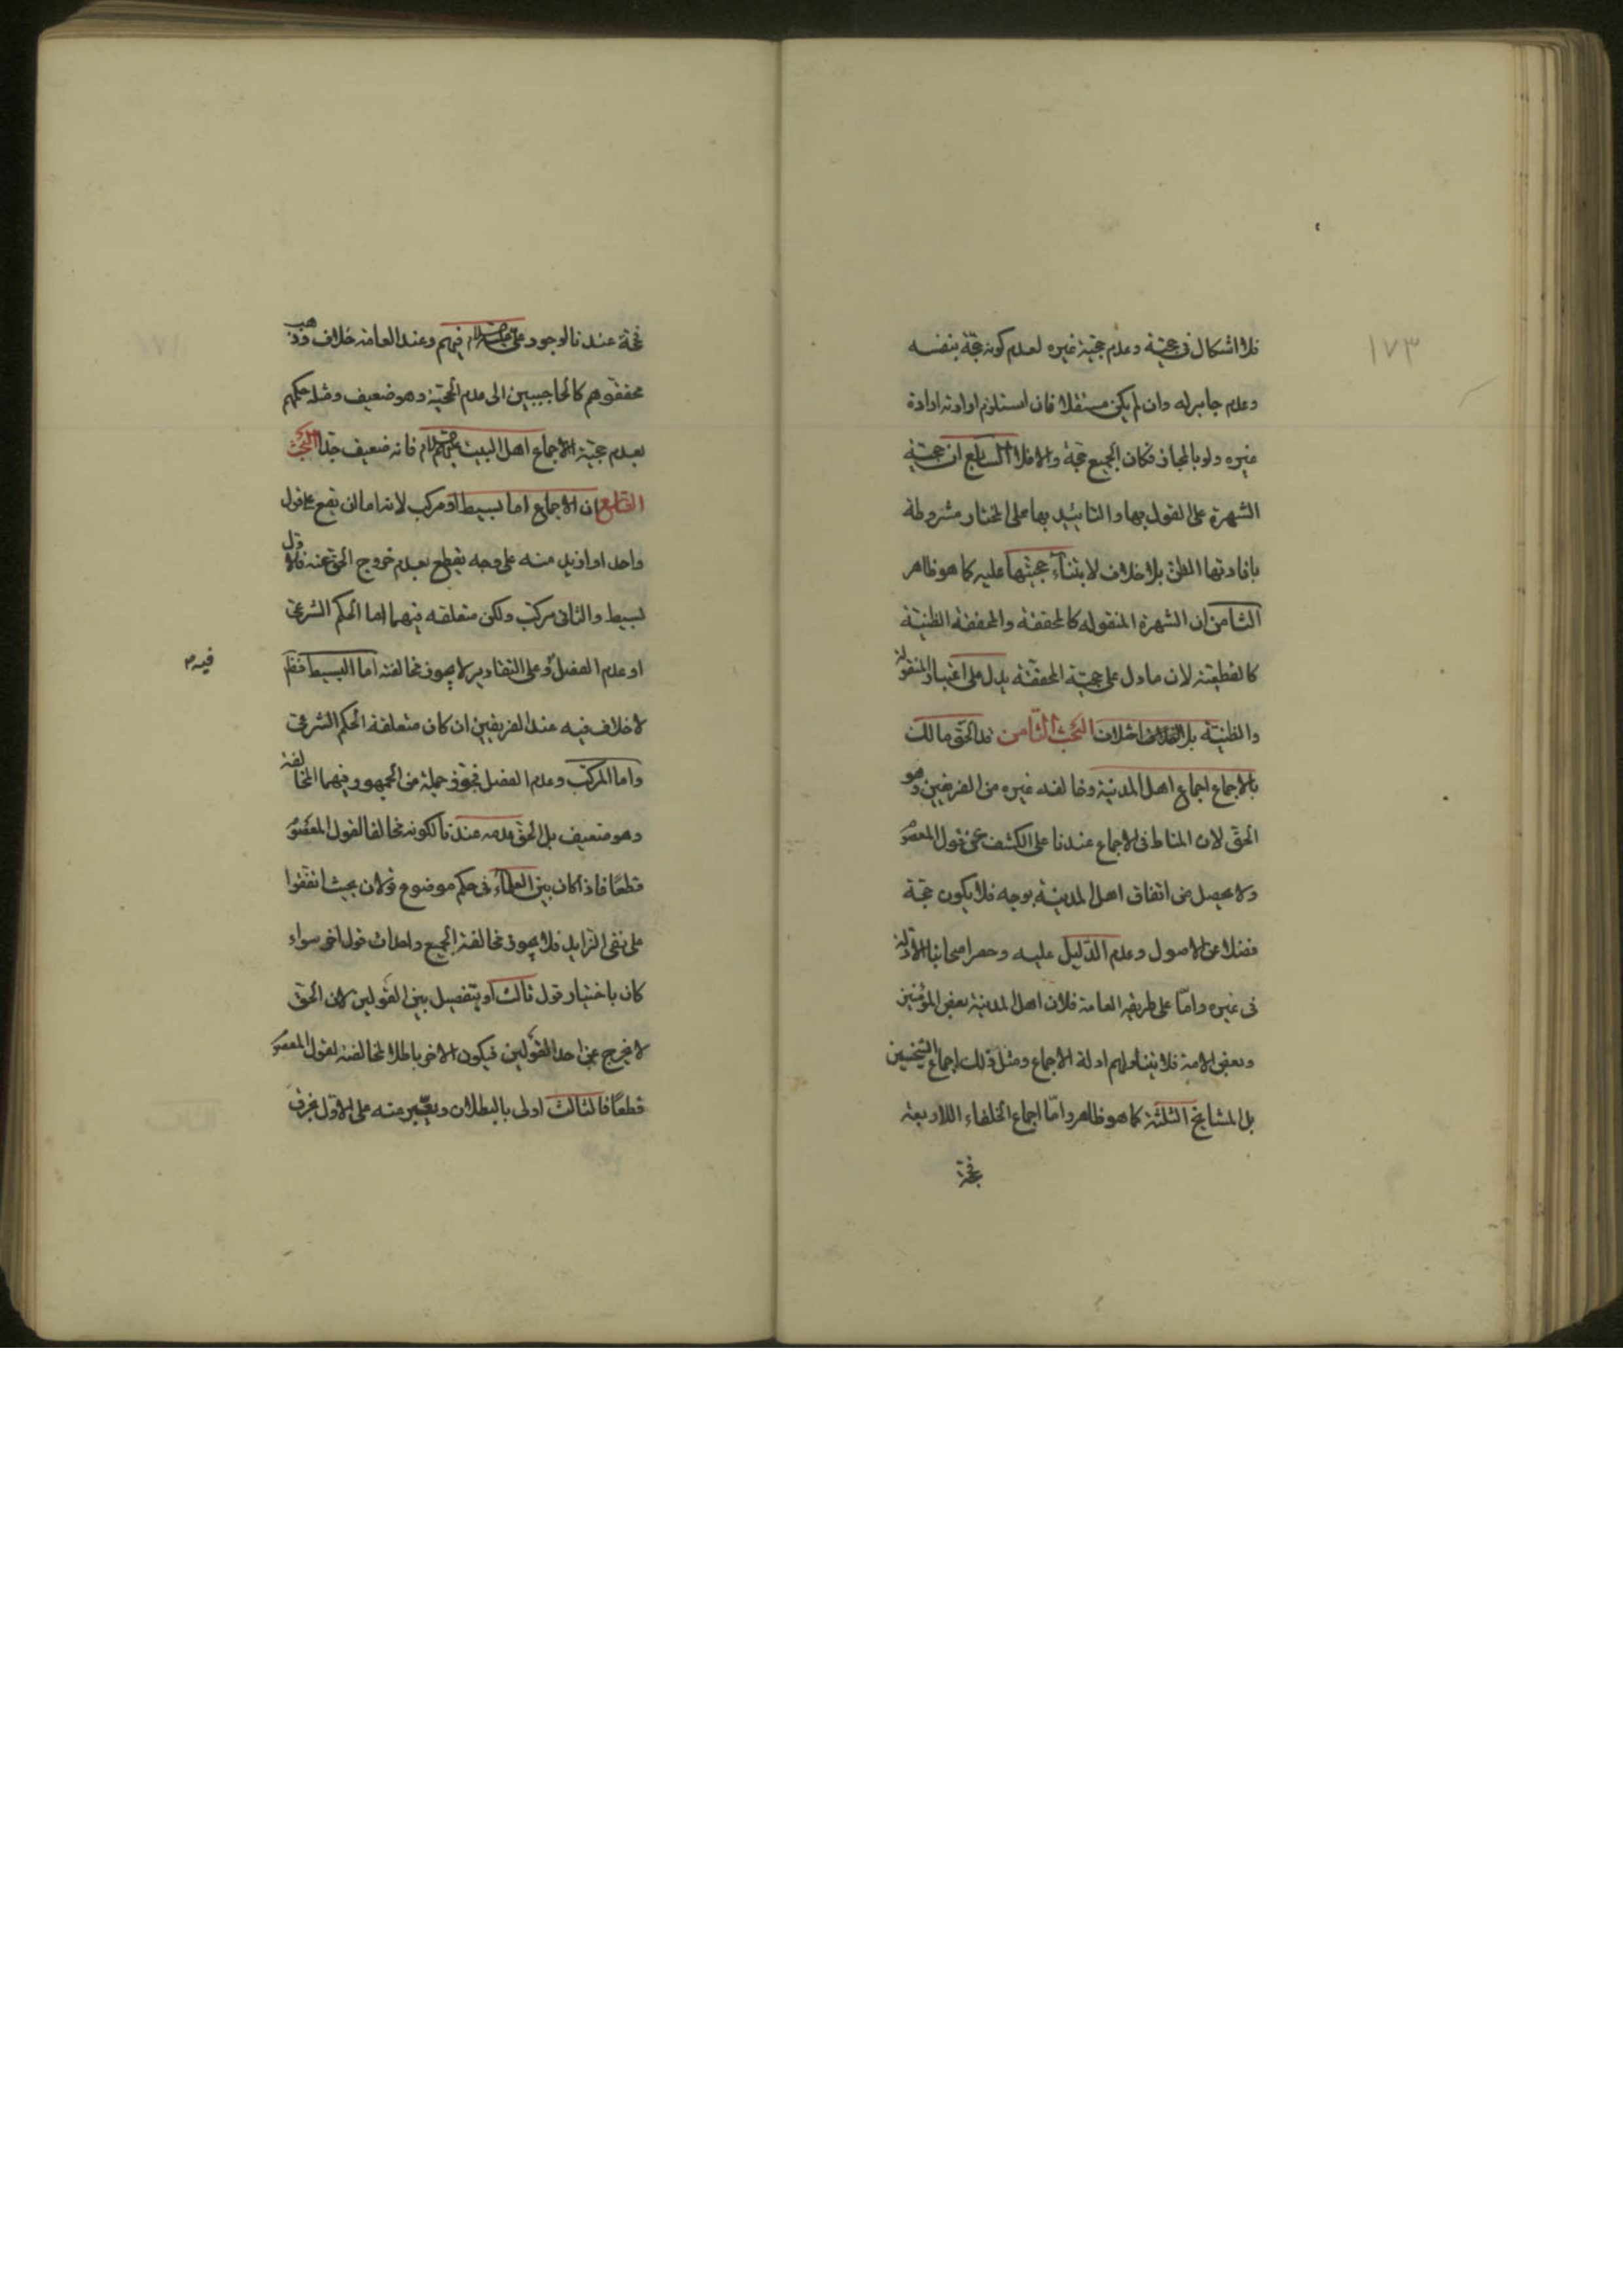 ١٧٣
فلا اشكال فى حجية وعدم حجية غيره لعدم كونه حجة بنفسه
وعدم جابر له وان لم يكن مستقلا فان استلزم ارادته ارادة
غيره ولو بالمجاز فكان الجميع حجة والا فلا السابع ان حجية
الشهرة على القول بها والتائيد بها على المختار مشروطة
بافادتها الظن بلا خلاف لابتناء حجيتها عليه كما هو ظاهر
الثامن ان الشهرة المنقولة كالمحققة والمحققة الظنية
كالقطعية لان ما دل على حجية المحققة يدل على اعتبار المنقولة
والظنية بل البحث الثامن مالك
بالاجماع اجماع اهل المدينة وخالفه غيره من الفريقين وهو
الحق لان المناط فى الاجماع عندنا على الكشف عن قول المعصوم
ولا يحصل من اتفاق اهل المدينة بوجه فلا يكون حجة
فضلا عن الاصول وعدم الدليل عليه وحصر اصحابنا الادلة
فى غيره وامّا على طريقه العامة فلان اهل المدينة بعض المؤمنين
وبعض الامة فلا يتناولهم ادلة الاجماع ومثل ذلك اجماع الشيخين
بل المشايخ الثلثة كما هو ظاهر وامّا اجماع الخلفاء اللاربعة
فحجة
فحجة عندنا لوجود على فيهم وعند العامة خلاف وذهب
محققوهم كالحاجبيين الى عدم الحجية وهو ضعيف ومثله حكمهم
بعدم حجية الاجماع اهل البيت عليهم السلام فانه ضعيف جدا البحث
التاسع ان الاجماع اما بسيط او مركب لانه اما ان يقع على قول
واحد او ازيد منه على وجه يقطع بعدم خروج الحق عنه فالاول
بسيط والثانى مركب ولكن متعلقه فيهما اما الحكم الشرعى
او عدم الفصل وعلى التقادير لا يجوز مخالفته اما البسيط فظ
فيه م
لا خلاف فيه عند الفريقين ان كان متعلقة الحكم الشرعى
واما المركب وعدم الفصل فجوز جملة من الجمهور فيهما المخالفة
وهو ضعيف بل الحق عدمه عندنا لكونه مخالفا لقول المعصوم
قطعًا فاذا كان بين العلماء فى حكم موضوع قولان بحيث اتفقوا
على نفى الزايد فلا يجوز مخالفة الجميع واحداث قول اخر سواء
كان باختيار قول ثالث او بتفصيل بين القولين لان الحق
لا يخرج عن احد القولين فيكون الاخر باطلا لمخالفته لقول المعصوم
قطعًا فالثالث اولى بالبطلان ويعبّر منه على الاول بخرق